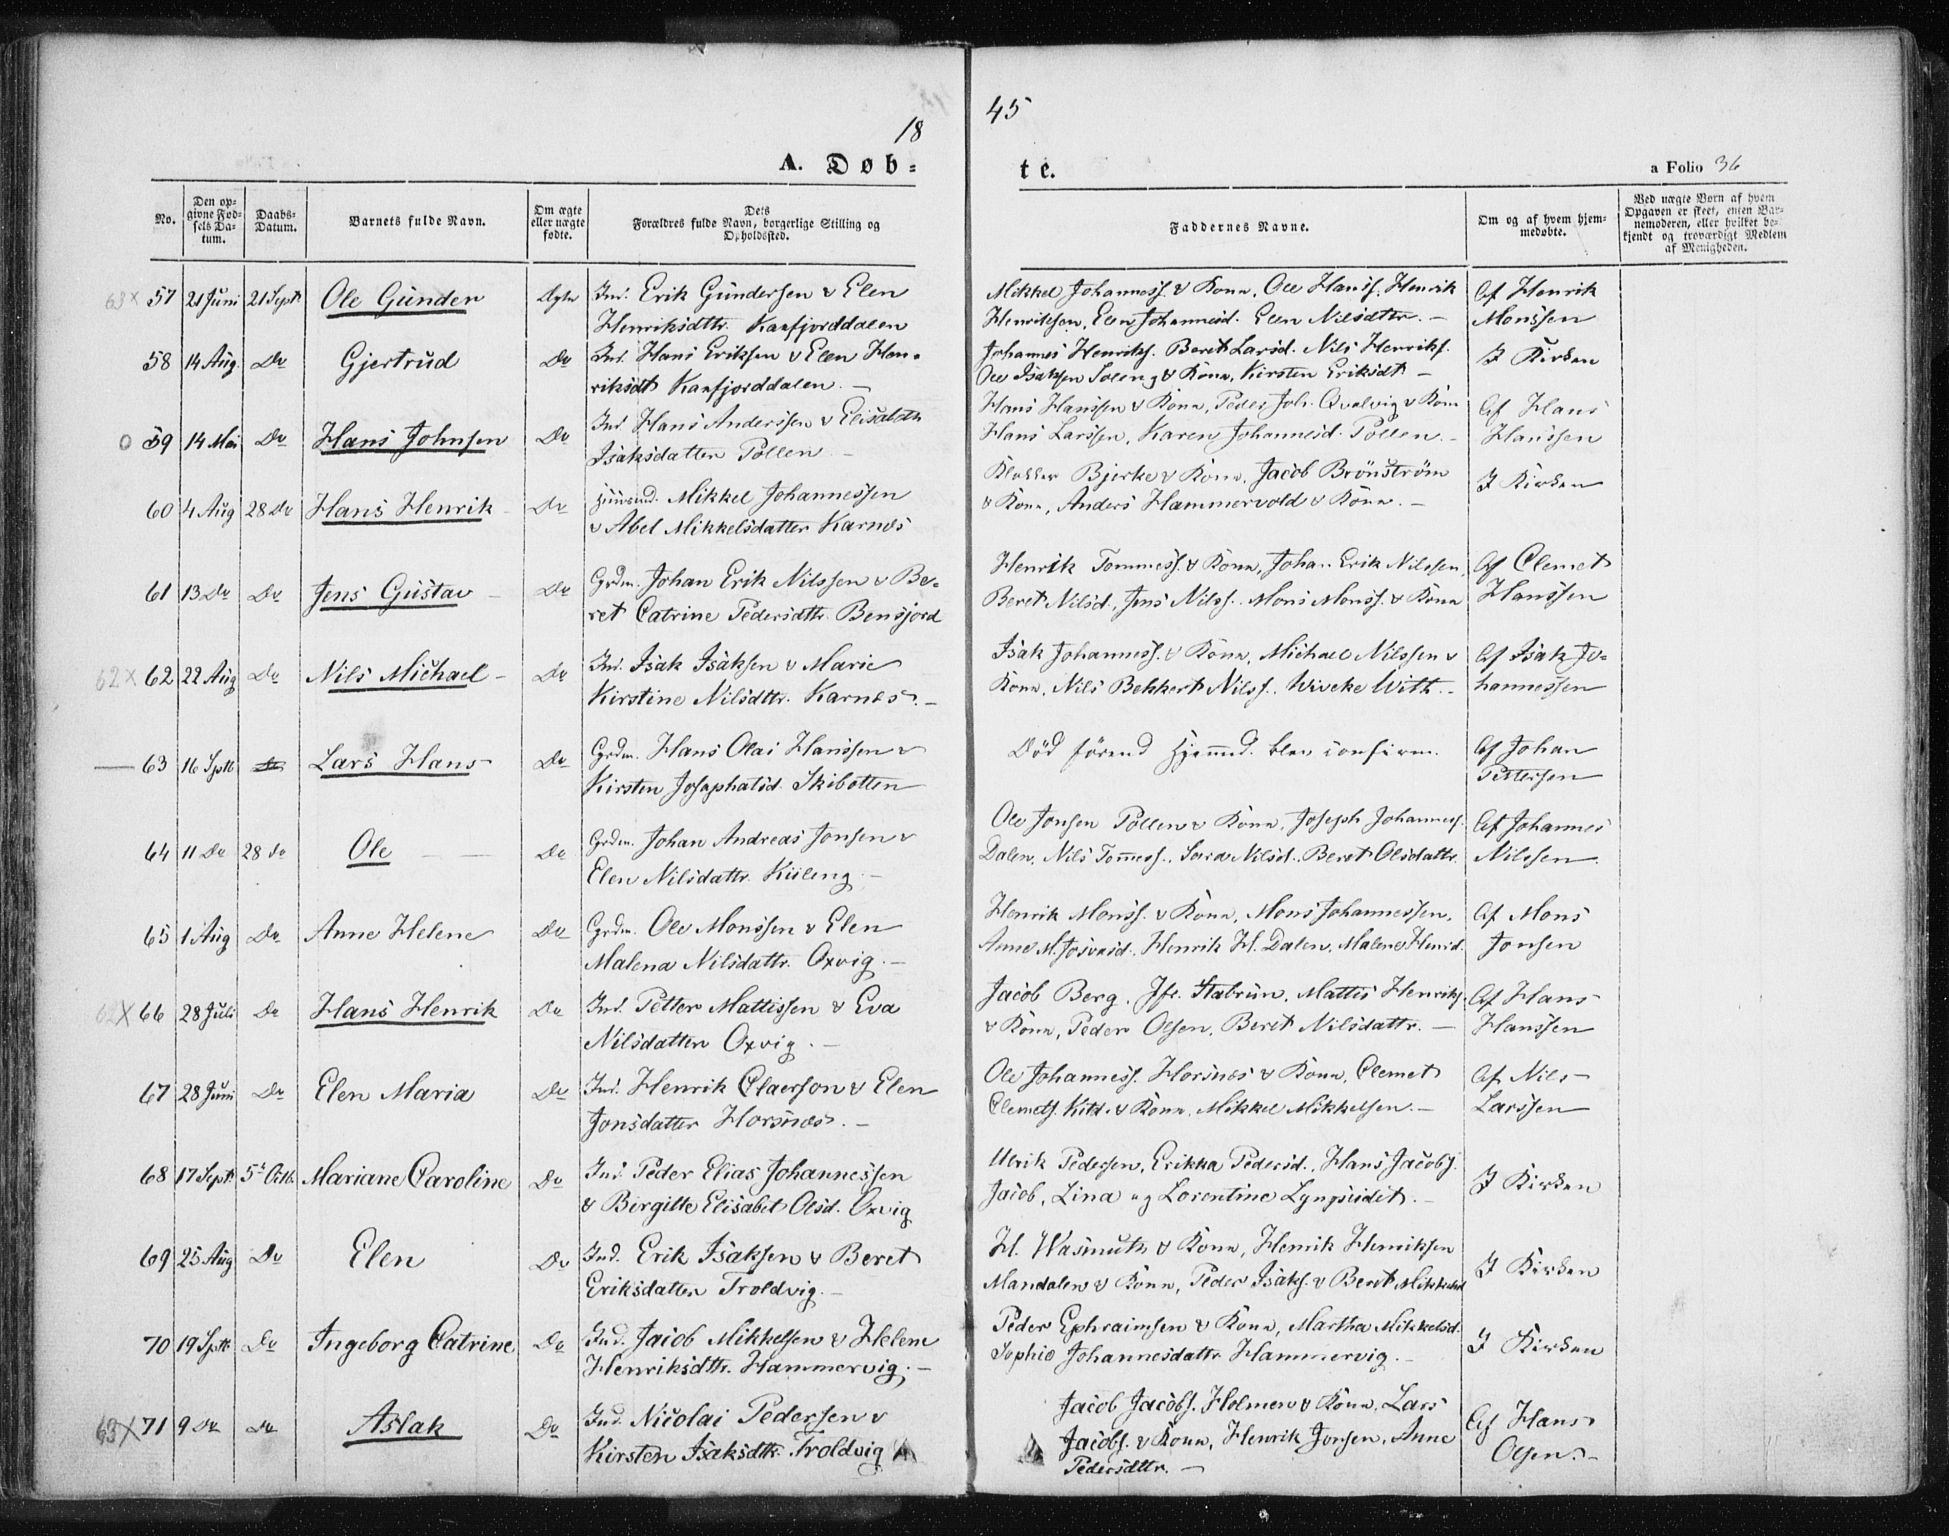 18
45
A. Døb-
te.
a Folio 36
No.
Den op-
givne Fød-
sels Da-
tum.
Daabs-
Datum.
Barnets fulde Navn.
Om ægte
eller uægte
fødte.
Dets
Forældres fulde Navn, borgerlige Stilling og
Opholdssted.
Faddernes Navne.
Om og af hvem hjem-
medøbte.
Ved uægte Børn af hvem
Opgaven er skeet, enten Bar-
nemoderen, eller hvilket be-
kjendt og troværdigt Medlem
af Menigheden.
63x 57 21 Juni 21 Septb Ole Gunder Ægte Ind. Erik Gundersen & Elen
Henriksdttr. Kaafjorddalen
Mikkel Johanness. & Kone, Ole Hanss. Henrik
Henriksen, Elen Johannesd. Elen Nilsdttr. -
Af Henrik
Monssen
58 14 Aug. Do Gjertrud Do Ind. Hans Eriksen & Elen Hen-
riksdt Kaafjorddalen. -
Johannes Henriks. Beret Larsd. Nils Henriks.
Ole Isaksen Soleng & Kone, Kirsten Eriksdt -
I Kirken
0 59 14 Mai Do Hans Johnsen Do Ind Hans Anderssen & Elisabeth
Isaksdatter Pollen -
Hans Hanssen & Kone, Peder Joh. Qvalvig & Kone
Hans Larssen, Karen Johannesd. Pollen. -
Af Hans
Hanssen
60 4 Aug 28 Do Hans Henrik - Do Huusmd. Mikkel Johannessen
& Abel Mikkelsdatter Karnes
Klokker Bjerke & Kone, Jacob Brönström
& Kone, Anders Hammervold & Kone. -
I Kirken
61 13 Do Do Jens Gustav - Do Grdm. Johan Erik Nilssen & Be-
ret Catrine Pedersdttr. Bensjord
Henrik Tommess. & Kone, Johan Erik Nilssen,
Beret Nilsd., Jens Nilss. Mons Monss. & Kone
Af Clemet
Hanssen
62x 62 22 Aug Do Nils Michael - Do Ind. Isak Isaksen & Marie
Kirstine Nilsdttr. Karnes. -
Isak Johanness. & Kone, Michael Nilssen &
Kone, Nils Bekkert Nilss. Wiveke With. -
Af Isak Jo-
hannessen
— 63 16 Septb Do Lars Hans Do Grdm. Hans Olai Hanssen &
Kirsten Josaphatsd. Skibotten
Död förend Hjemmed. blev confirm.
Af Johan
Pettersen
64 11 Do 28 do Ole - - Do Grdm. Johan Andreas Jonsen &
Elen Nilsdattr. Kiileng. -
Ole Jonsen Pollen & Kone, Joseph Johanness.
Dalen, Nils Tommess., Sara Nilsd. Beret Olsdattr.
Af Johannes
Nilssen.
65 1 Aug Do Anne Helene Do Grdm. Ole Monssen & Elen
Malena Nilsdattr. Oxvig. -
Henrik Monss. & Kone, Mons Johannessen,
Anne M. Josvasd. Henrik H. Dalen, Malene Henrid.
Af Mons
Jonsen
62x 66 28 Juli Do Hans Henrik Do Ind. Petter Mattissen & Eva
Nilsdatter Oxvig. -
Jacob Berg, Jfr. Stabrun, Mattis Henriks.
& Kone, Peder Olsen, Beret Nilsdattr. -
Af Hans
Hanssen
67 28 Juni Do Elen Maria Do Ind. Henrik Claerson & Elen
Jonsdatter Horsnes. -
Ole Johanness. Horsnes & Kone, Clemet
Clemets. Kitd. & Kone, Mikkel Mikkelsen. -
Af Nils
Larssen
68 17 Septb 5t Octb. Mariane Caroline Do Ind. Peder Elias Johannessen
& Birgitte Elisabet Olsd. Oxvig
Ulrik Pedersen, Erikka Pedersd., Hans Jacobs.
Jacob, Lina og Lorentine Lyngseidet. -
I Kirken
69 25 Aug Do Elen Do Ind. Erik Isaksen & Beret
Eriksdatter Troldvig. -
H. Wasmuth & Kone, Henrik Henriksen
Mandalen & Kone, Peder Isaks. & Beret Mikkelsd
I Kirken
70 19 Septb Do Ingeborg Catrine Do Ind. Jacob Mikkelsen & Helene
Henriksdttr. Hammervig. -
Peder Ephraimsen & Kone, Martha Mikkelsd.
Sophie Johannesdattr Hammervig. -
I Kirken
63x 71 9 Do Do Aslak Do Ind. Nicolai Pedersen &
Kirsten Isaksdttr. Troldvig
Jacob Jacobs. Holmen & Kone, Lars
Jacobs. & Kone, Henrik Jonsen, Anne
Pedersdttr. -
Af Hans
Olsen. -